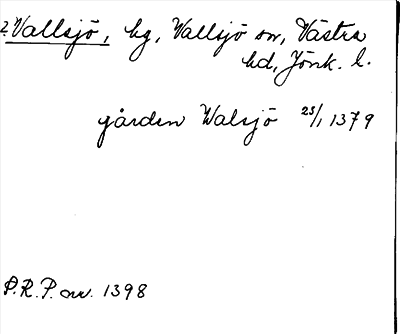 2. Vallsjö, hg, Vallsjö sn, Västra
hd, Jönk. l.
gården Walsjö 23/1 1379
P.R.P. nr. 1398